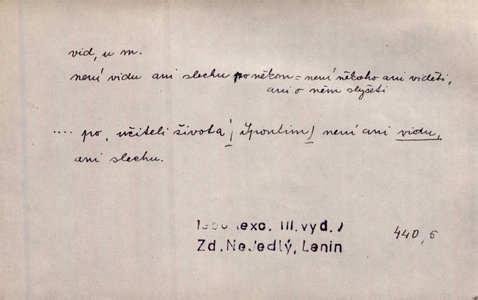 vid, u m.
není vidu ani slechu po někom = není někoho ani viděti,
ani o něm slyšeti
.... po „učiteli života“ není ani vidu,
ani slechu.
exc. III. vyd.)
Zd. Nejedlý, Lenin
440,5